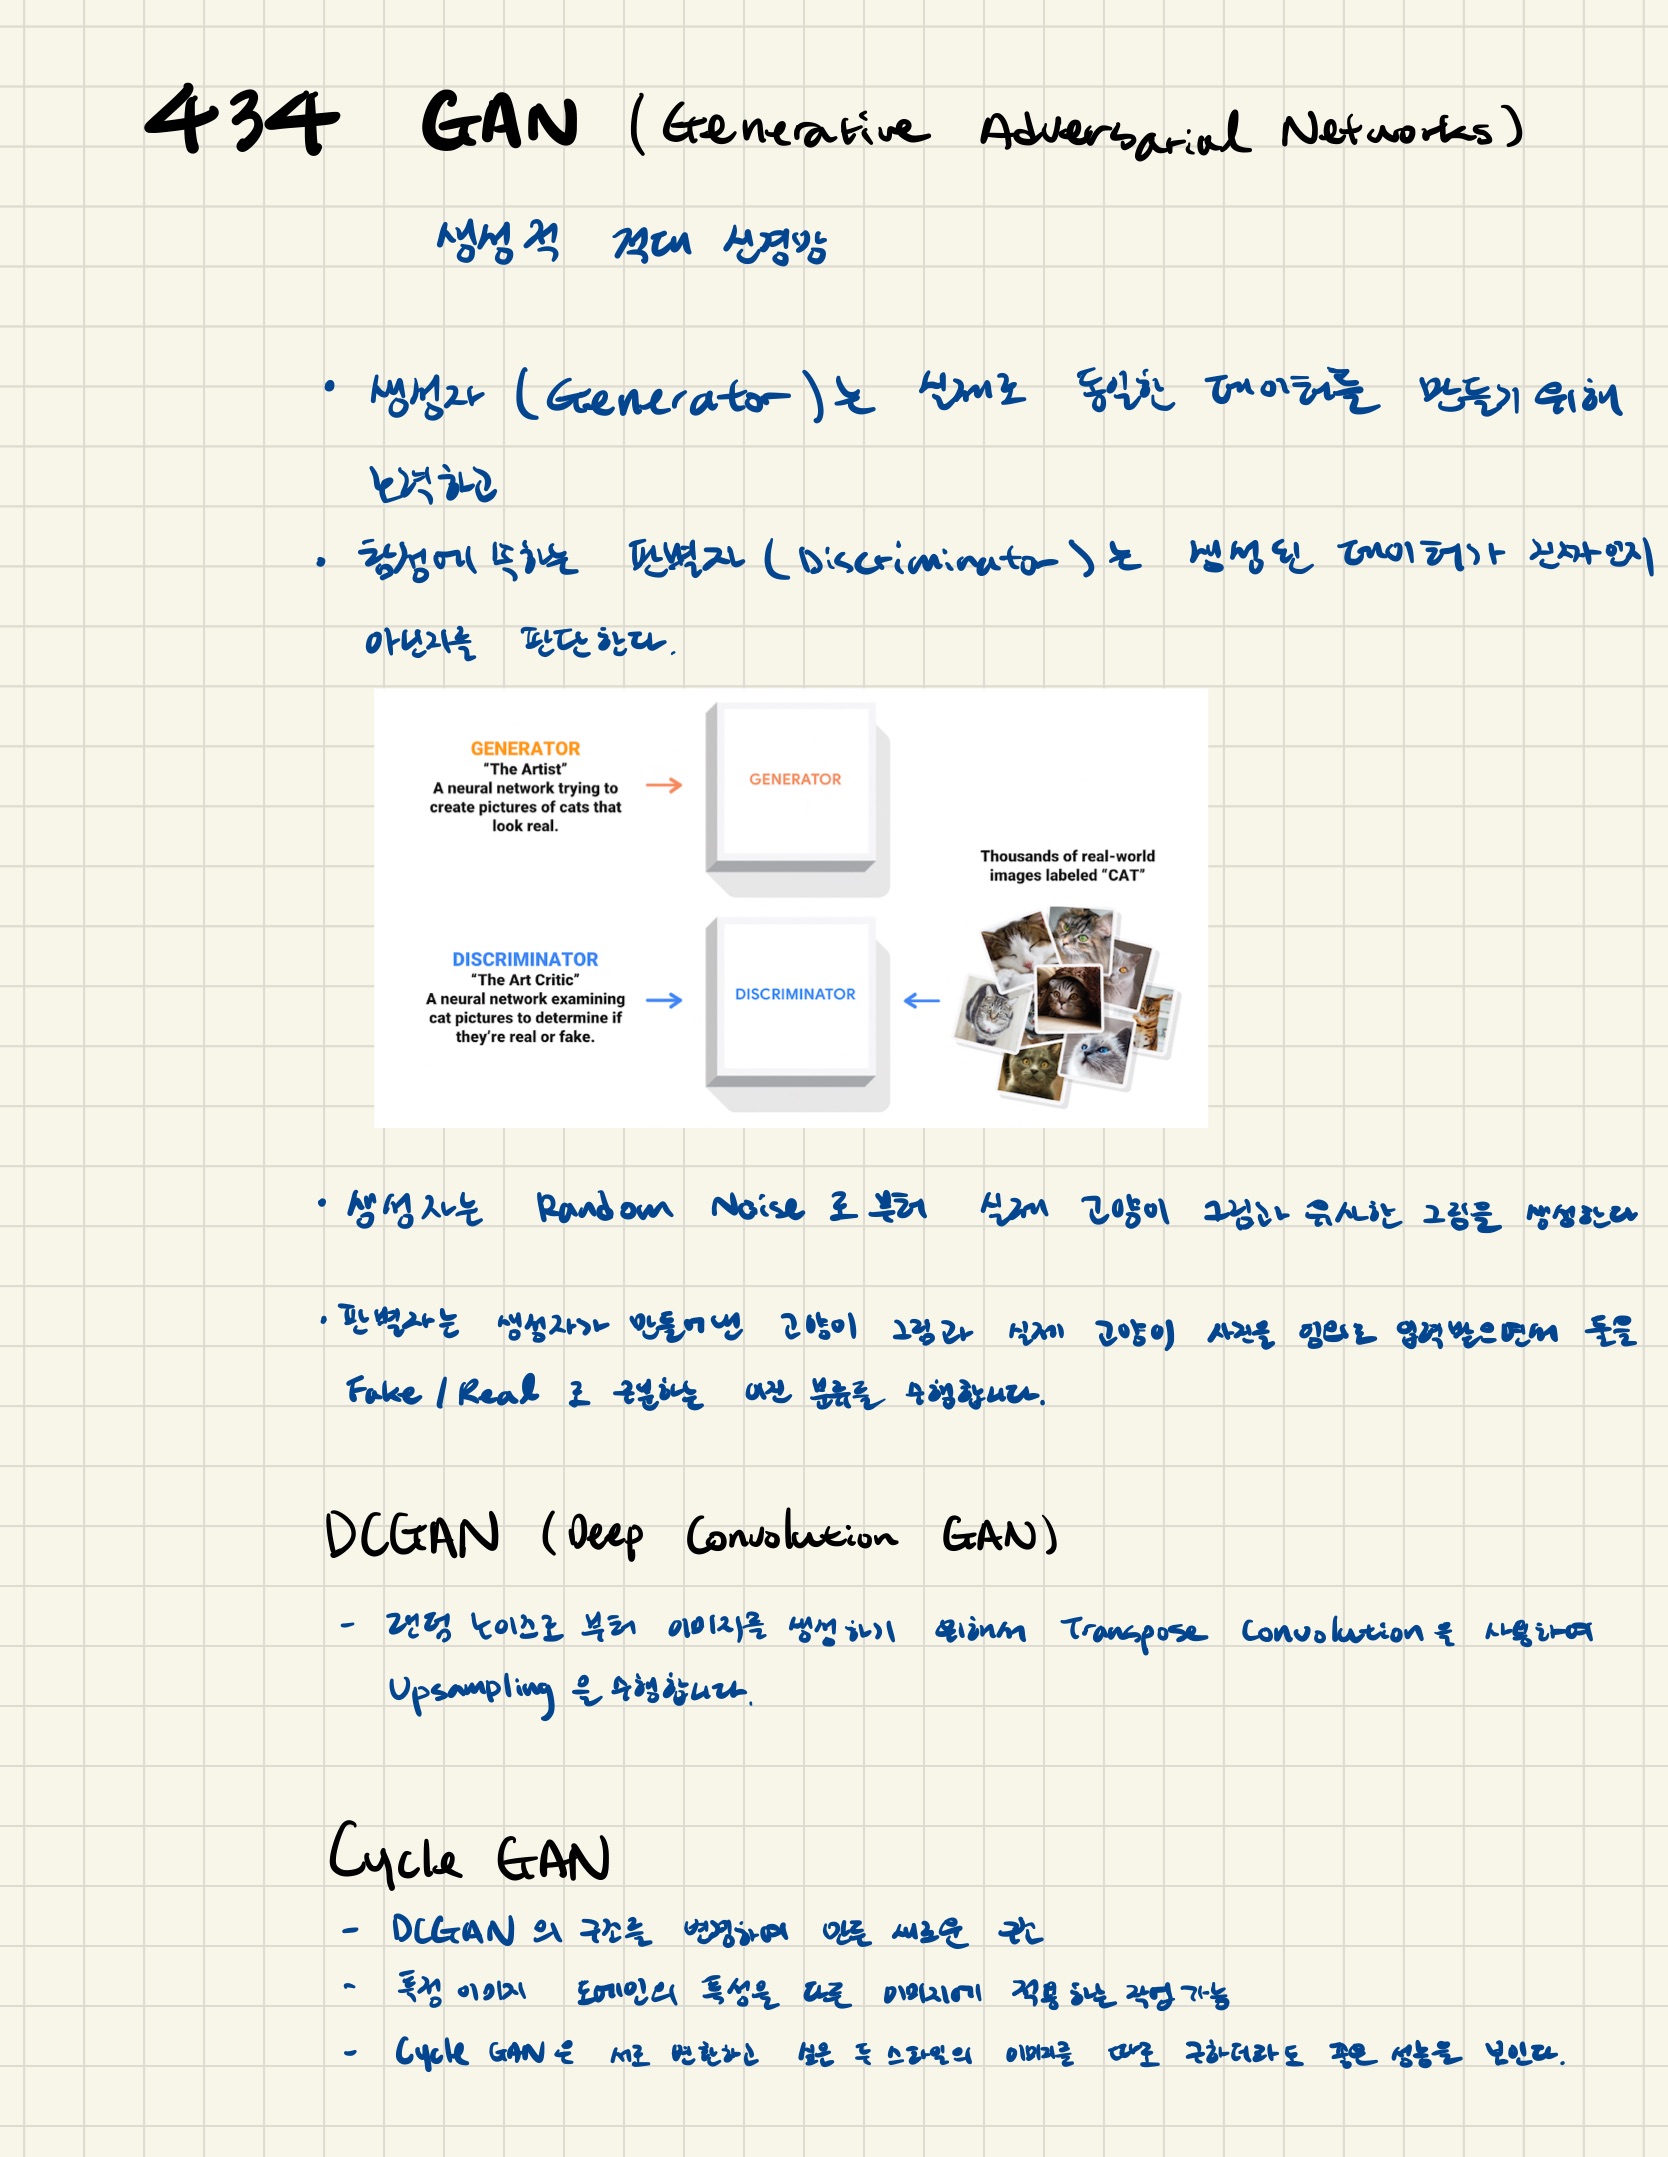 434 GAN (Generative Adversarial Networks)
생성적 적대 신경망
• 생성자 (Generator)는 실제로 동일한 데이터를 만들기 위해
노력하고
• 함정에 속하는 판별자 (Discriminator)는 생성된 데이터가 진짜인지
아닌지를 판단한다.
GENERATOR
“The Artist”
A neural network trying to
create pictures of cats that
look real.
GENERATOR
Thousands of real-world
images labeled “CAT”
DISCRIMINATOR
“The Art Critic”
A neural network examining
cat pictures to determine if
they’re real or fake.
DISCRIMINATOR
• 생성자는 Random Noise로 부터 실제 고양이 그림과 유사한 그림을 생성한다
• 판별자는 생성자가 만들어낸 고양이 그림과 실제 고양이 사진을 임의로 입력받으면서 둘을
Fake / Real 로 구분하는 이진 분류를 수행합니다.
DCGAN (Deep Convolution GAN)
- 랜덤 노이즈로 부터 이미지를 생성하기 위해서 Transpose Convolution을 사용하여
Upsampling 을 수행합니다.
Cycle GAN
- DCGAN 의 구조를 변경하여 만든 새로운 구조
- 특정 이미지 도메인의 특성을 다른 이미지에 적용하는 작업 가능
- Cycle GAN은 서로 변환하고 싶은 두 스타일의 이미지를 따로 구하더라도 좋은 성능을 보인다.